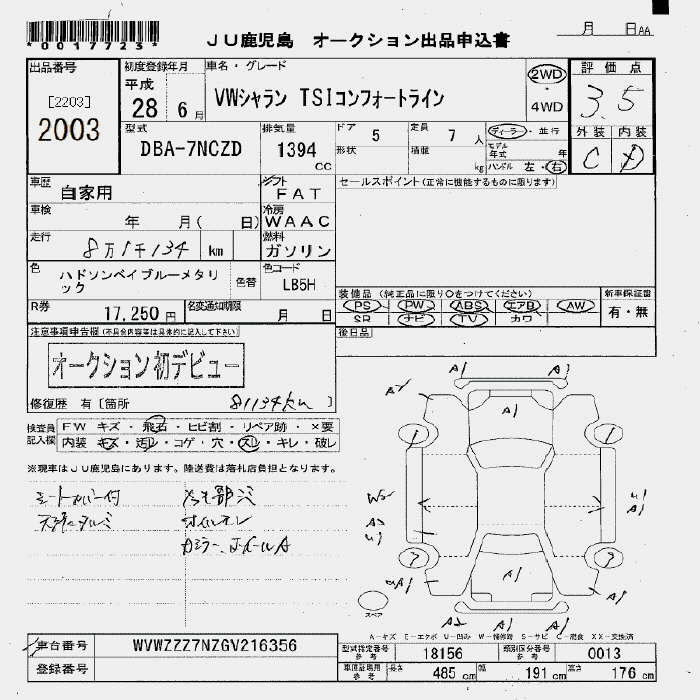 *0017723*
JU鹿児島 オークション出品申込書
月 日AA
出品番号
[2203]
2003
初度登録年月
平成
28 6月
車名・グレード
VWシャラン TSIコンフォートライン
2WD
・
4WD
評価点
3.5
外装 内装
C D
型式
DBA-7NCZD
排気量
1394
CC
ドア 5
定員 7 人
形状
積載 kg
ディーラー・並行
モデル年式 年
ハンドル 左・右
車歴
自家用
シフト
FAT
車検
年 月( 日)
冷房
WAAC
走行
8万1千134 km
燃料
ガソリン
色
ハドソンベイブルーメタリック
色替
色コード
LB5H
R券
17,250円
名変通知期限
月 日
セールスポイント(正常に機能するものに限ります)
装備品 (純正品に限り○をつけてください)
PS PW ABS エアB AW
SR ナビ TV カワ
新車保証書
有・無
後日品
注意事項申告欄(不具合内容等は具体的に記入して下さい)
オークション初デビュー
修復歴 有[箇所 81134km ]
検査員記入欄
FW キズ・飛石・ヒビ割・リペア跡・×要
内装 キズ・汚レ・コゲ・穴・スレ・キレ・破レ
※現車はJU鹿児島にあります。陸送費は落札店負担となります。
シートカバー付
天張タルミ
A1 A1
A1
W2
A2
U1
U1
A1
A1
A1
A2 A1
スペア
A-キズ E-エクボ U-凹み W-補修跡 S-サビ C-腐食 XX-交換済
車台番号
WVWZZZ7NZGV216356
登録番号
型式指定番号
参考
18156
類別区分番号
参考
0013
車庫証明用
参考
長さ 485 cm 幅 191 cm 高さ 176 cm